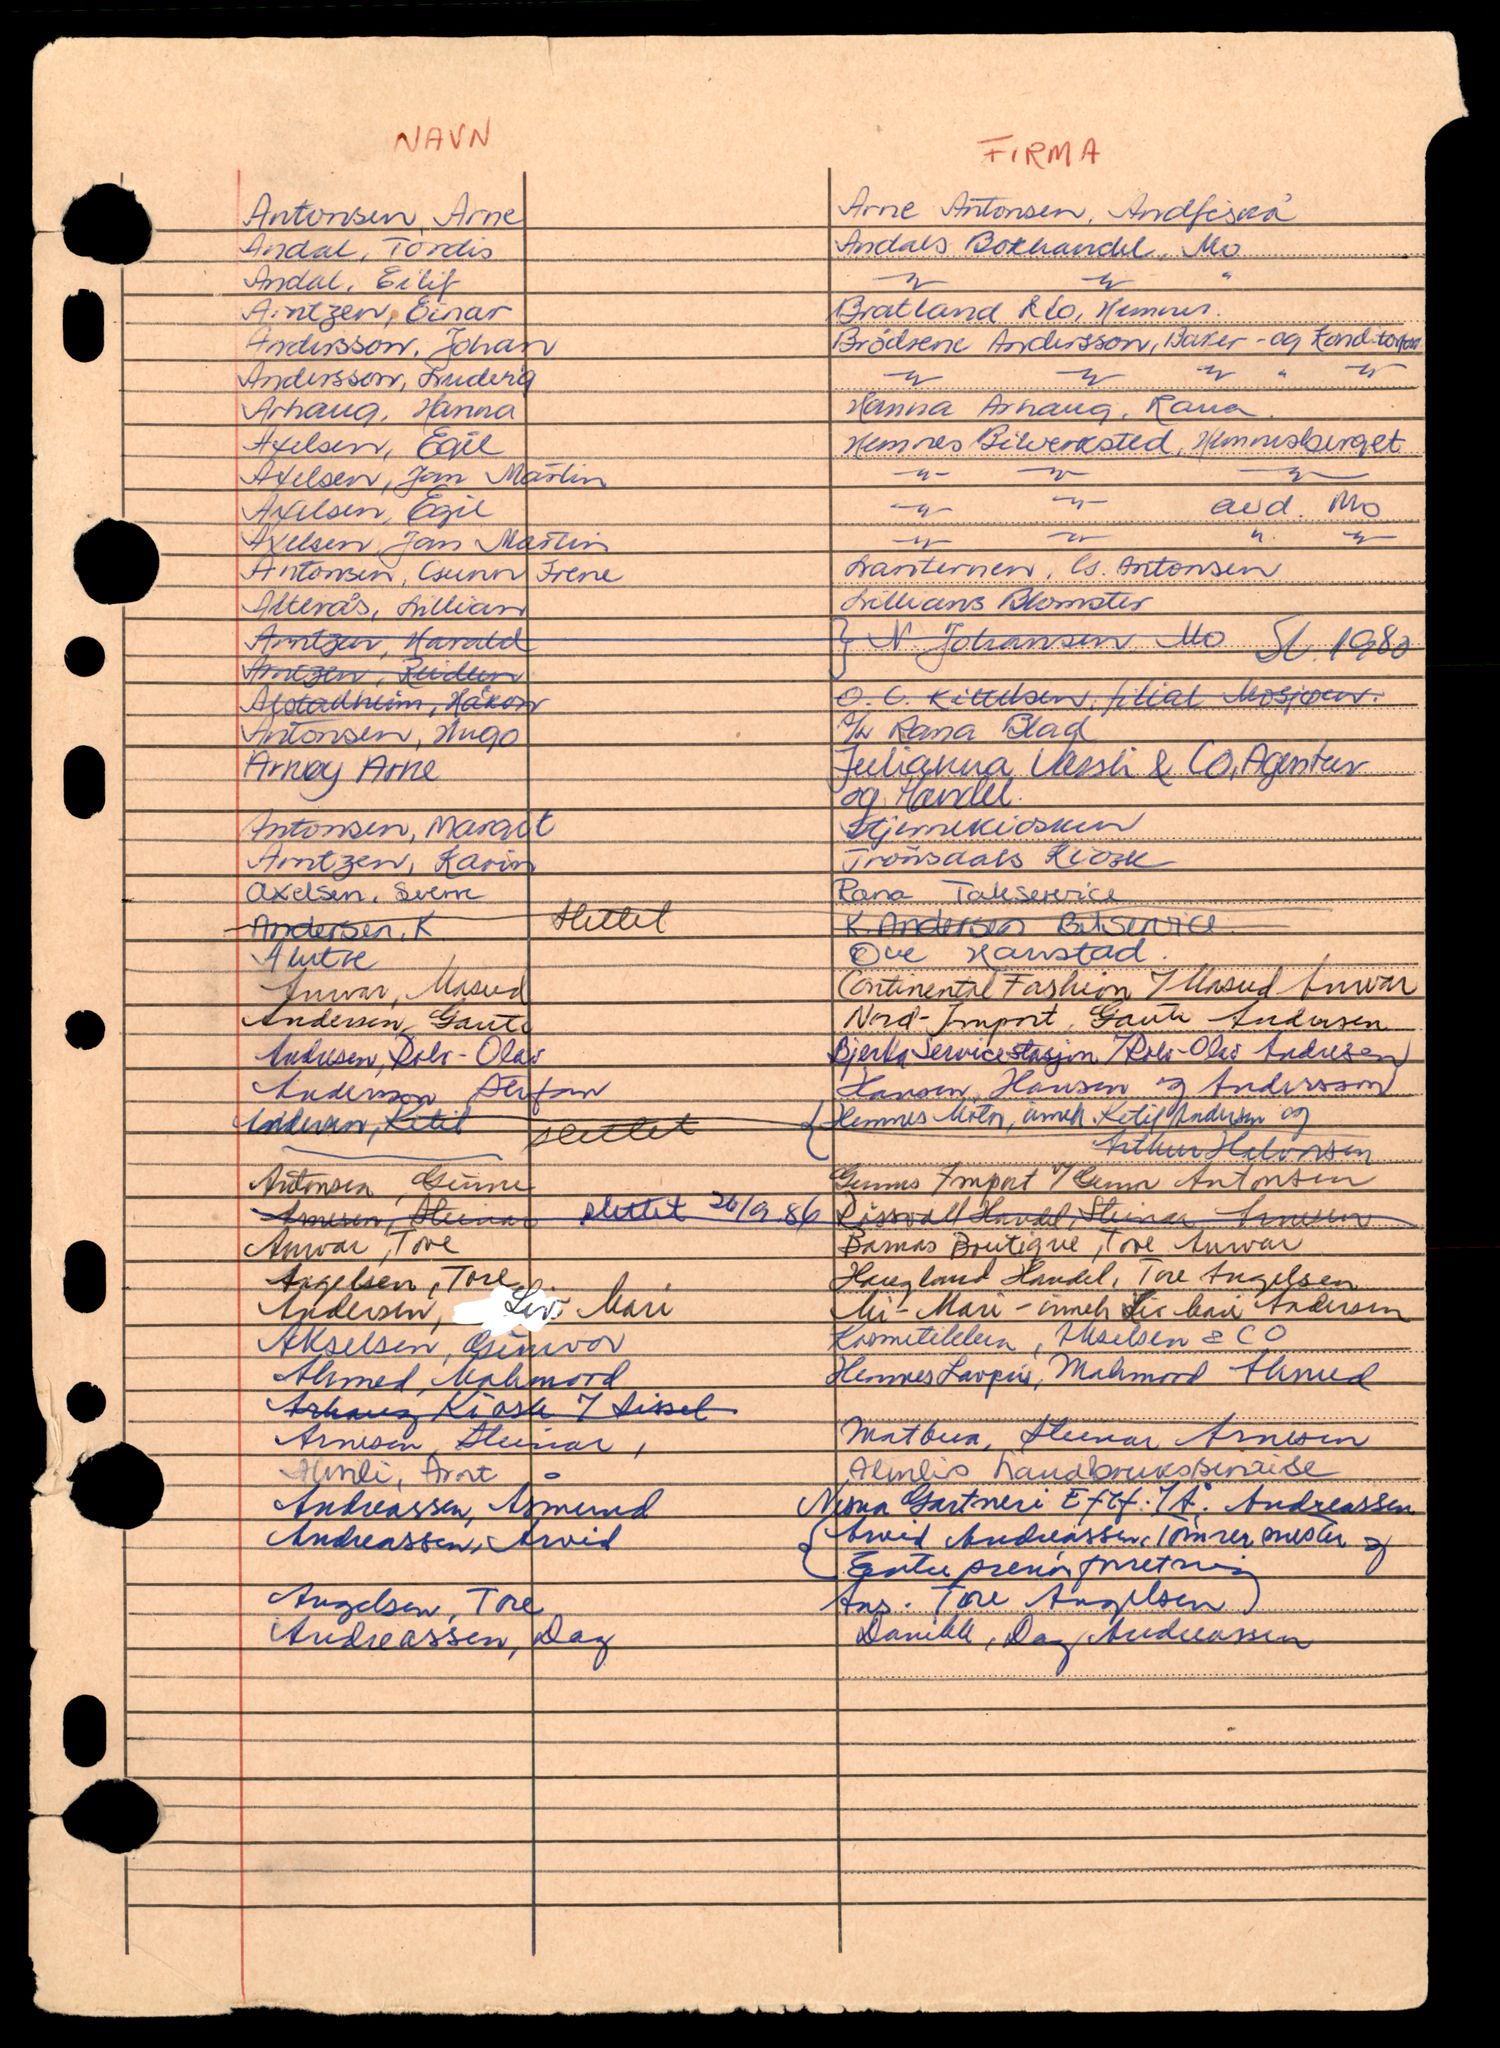 NAVN FIRMA
Antonsen, Arne Arne Antonsen, Andfiskå
Andal, Tordis Andals Bokhandel, Mo
Andal, Eilif -"- -"- "
Arntzen, Einar Bratland & Co, Hemnes.
Andersson, Johan Brødrene Andersson, Baker- og Konditori
Andersson, Ludvig -"- -"- -"- " -"-
Århaug, Hanna Hanna Århaug, Rana.
Axelsen, Egil Hemnes Bilverksted, Hemnesberget
Axelsen, Jan Martin -"- -"- -"-
Axelsen, Egil -"- -"- avd. Mo
Axelsen, Jan Martin -"- -"- " -"-
Antonsen, Gunn Irene Lanternen, G. Antonsen
Alterås, Lillian Lillians Blomster
Arntzen, Harald } N. Johansen Mo Sl. 1980
Arntzen, Reidun
Alstadheim, Håkon O. C. Kittelsen, filial Mosjøen.
Antonsen, Hugo A/L Rana Blad
Arnøy Arne Julianna Vassli & Co, Agentur
og Handel.
Antonsen, Margit Stjernekiosken
Arntzen, Karin Trønsdals Kiosk
Axelsen, Sverre Rana Takservice
Andersen, K. slettet K. Andersen Bilservice
Ove Hanstad.
Anwar, Masud Continental Fashion / Masud Anwar
Andersen, Gaute Nord-Import, Gaute Andersen
Andresen, Rolv-Olav Bjerka Servicestasjon / Rolv-Olav Andresen
Andersson Stefan Hansen, Hansen og Andersson
Andersen, Ketil slettet { Hemnes Motor, inneh. Ketil Andersen og
Arthur Halvorsen
Antonsen, Gunn Gunns Import v/ Gunn Antonsen
Arnesen, Steinar slettet 26/9.86 Røssvoll Handel, Steinar Arnesen
Anwar, Tove Bamas Boutique, Tove Anwar
Angelsen, Tore Haugland Handel, Tore Angelsen
Andersen, Liv Mari Mi-Mari - inneh Liv Mari Andersen
Akselsen, Gunvor Kosmetikken, Akselsen & CO
Ahmed, Mahmood Hemnes Lavpris, Mahmood Ahmed
Århaug Kiosk / Sissel
Arnesen, Steinar, Matbua, Steinar Arnesen
Almli, Arnt Almlis Landbruksservice
Andreassen, Asmund Nesna Gartneri Eftf. / A. Andreassen
Andreassen, Arvid { Arvid Andreassen, Tømrermester og
Entreprenørforretning
Angelsen, Tore Ans. Tore Angelsen
Andreassen, Dag Danikk, Dag Andreassen